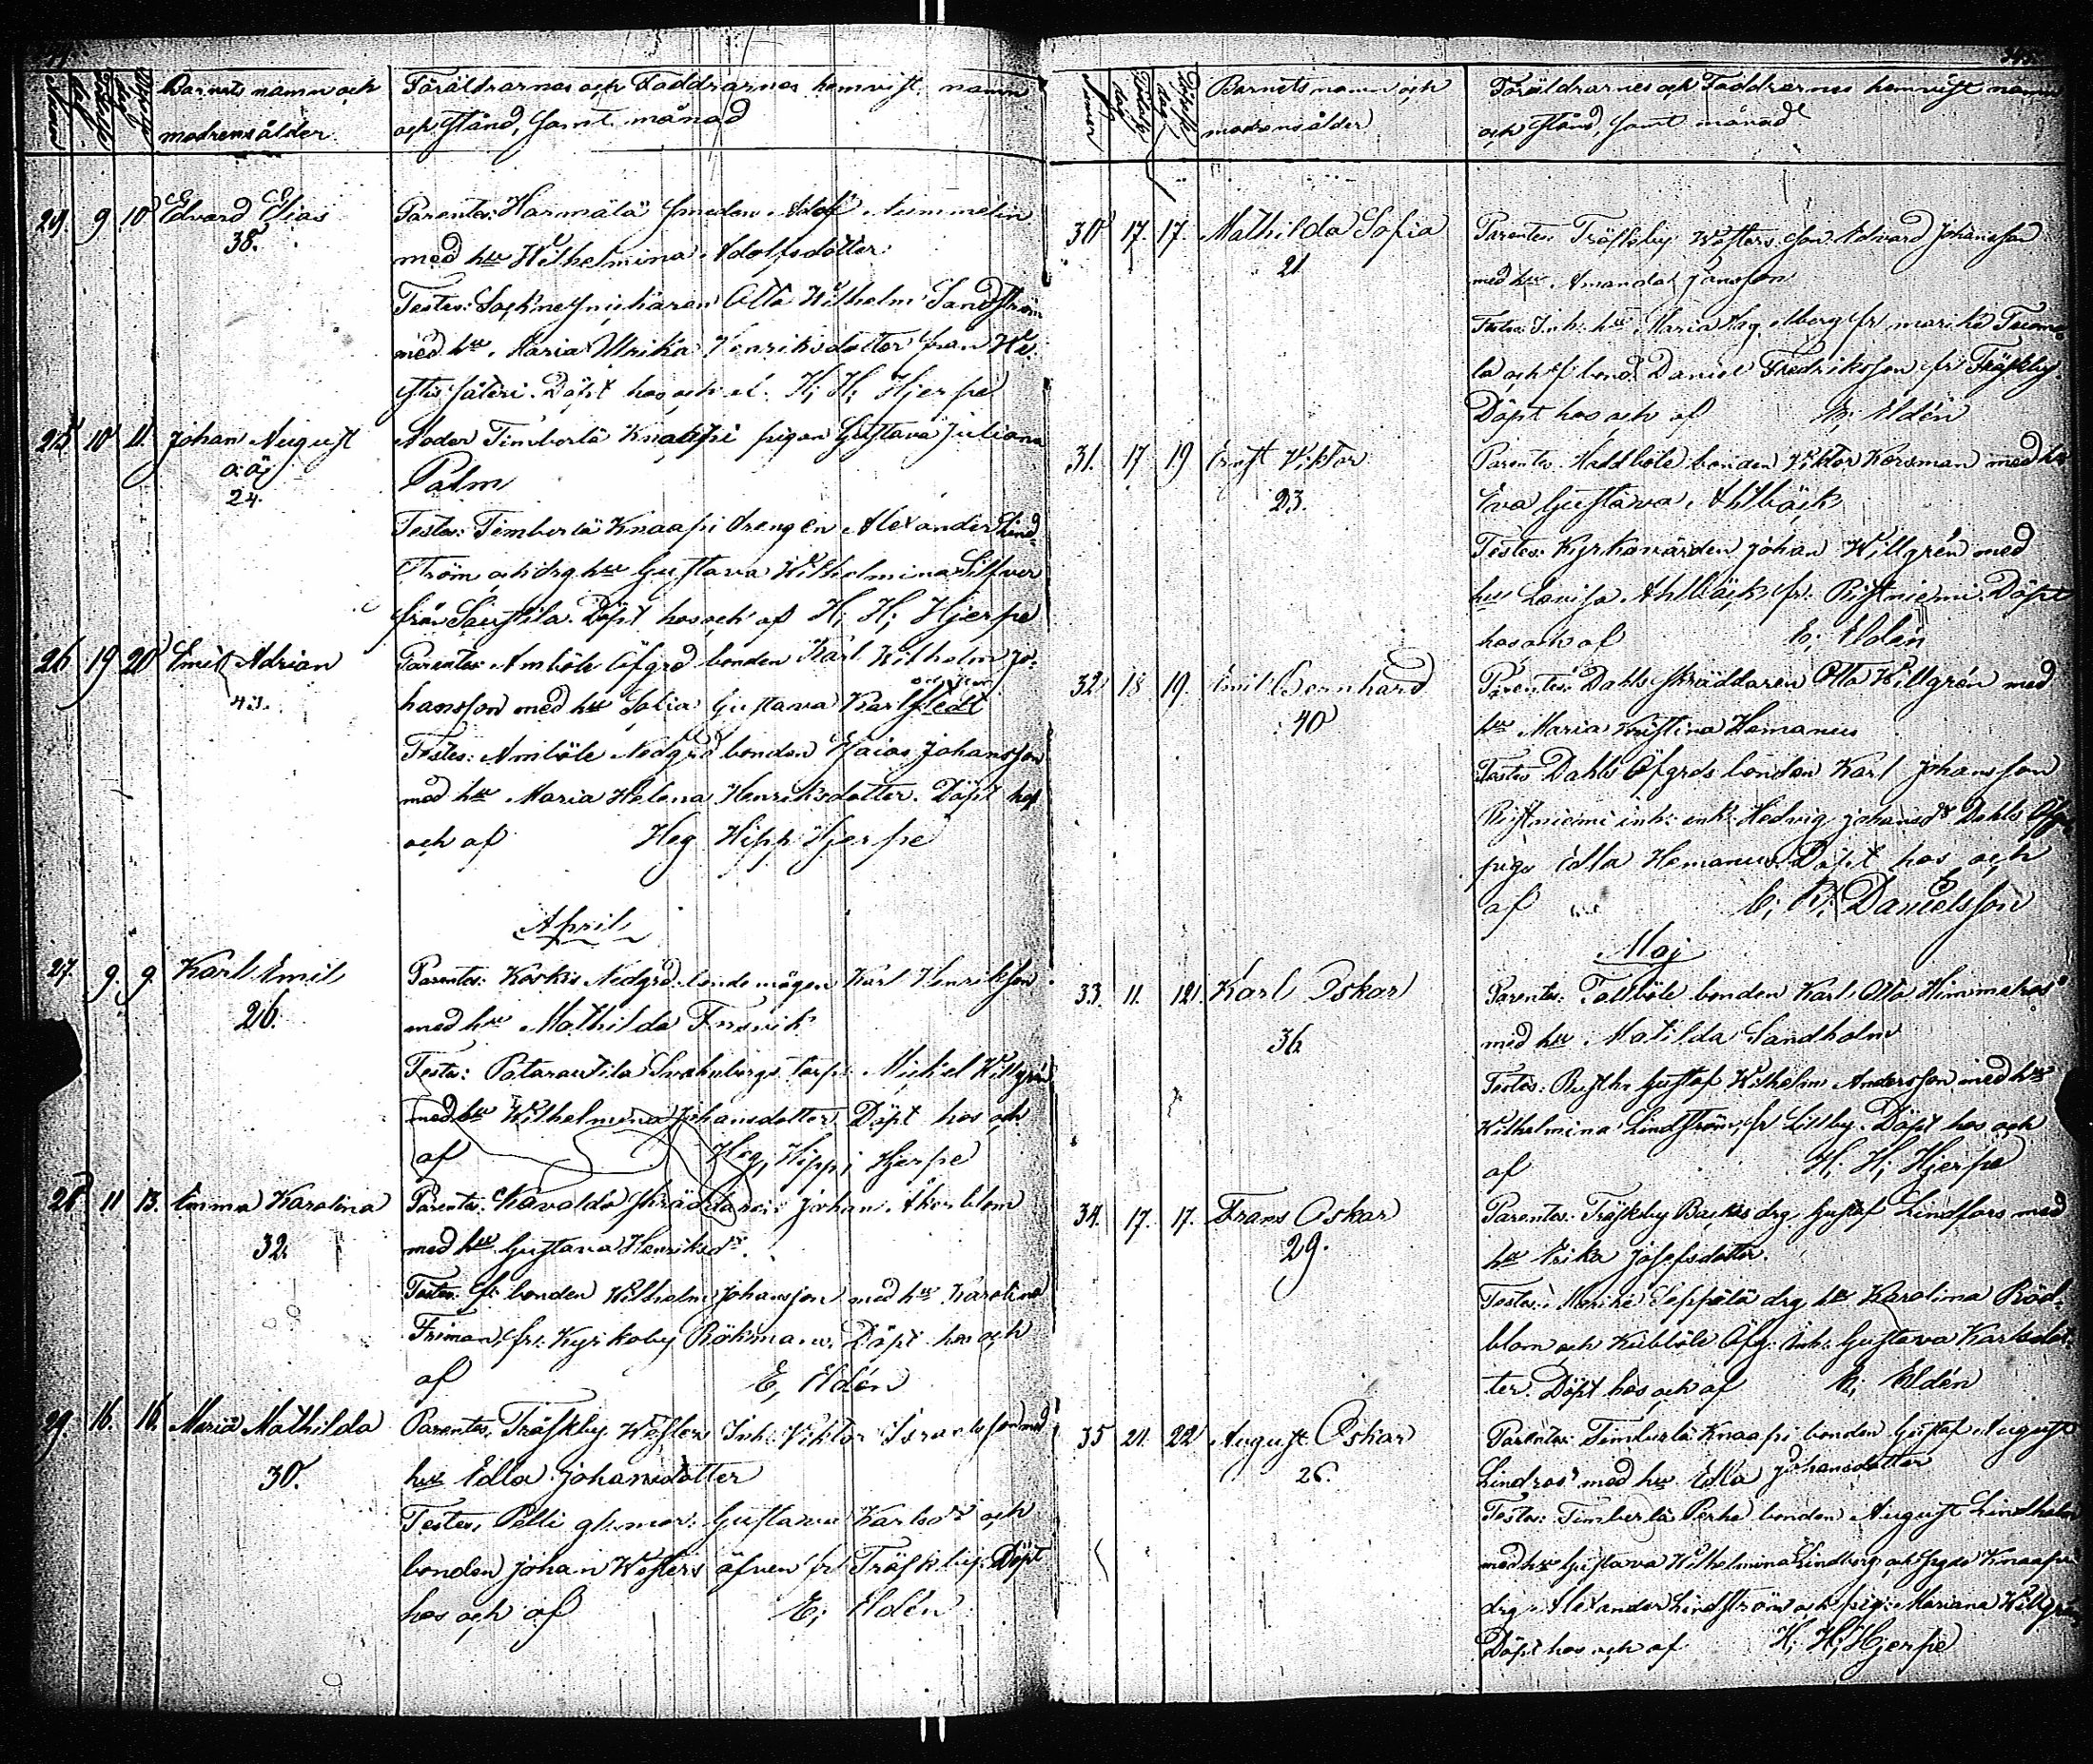 Barnets namn och
modrens ålder
Föräldrarnes och Faddrarnes hemvist, namn
och stånd, samt månad
24. 9 10 Edvard Elias
38.
Parentes: Harmälä smeden Adolf Nummelin
med hu Wilhelmina Adolfsdotter
Testes: Otto Wilhelm Sandström
med hu Maria Ulrika Henriksdotter från
säteri. Döpt hos och af H; H; Hjerpe
25 10 11. Johan August
o. äg
24.
Moder Timberlä Knaapi pigan Gustava Juliana
Palm
Testes: Timberlä Knaapi drengen Alexander Lind-
ström och drg. hu Gustava Wilhelmina Silfver
från Saustila. Döpt hos och af H; H; Hjerpe
26 19 20 Emil Adrian
43.
Parentes: Amböle Öfgrd bonden Karl Wilhelm Jo-
hansson med hu Sofia Gustava Karlstedt
Testes: Amböle Nedgrd bonden Esaias Johansson
med hu Maria Helena Henriksdotter. Döpt hos
och af Heg Hipp Hjerpe
April
27. 9. 9. Karl Emil
26.
Parentes: Koskis Nedgrd bondemågen Karl Henriksson
med hu Mathilda
Testes: Torp. Michel Willgrén
med hu Wilhelmina Johansdotter Döpt hos och
af Heg, Hipp; Hjerpe
28 11 13. Emma Karolina
32
Parentes: skräddaren Johan Åkerblom
med hu Gustava Henriksdr.
Testes: bonden Wilhelm Johansson med hu Karolina
Friman, fr. Kyrkoby Döpt hos och
af E, Eldén
29. 16. 16. Maria Mathilda
30.
Parentes, Träskby Westers Inh. Viktor Israelsson med
hu Edla Johansdotter
Testes, Pelli gl. mor. Gustava Karlsdr och
bonden Johan Westers äfven fr Träskby. Döpt
hos och af E; Eldén
Barnets namn och
modrens ålder
Föräldrarnes och Faddrarnes hemvist namn
och stånd, samt månad
30 17. 17. Mathilda Sofia
21
Parentes Träskby Westers son Edvard Johansson
med hu Amanda Jansson
Testes: Inh. hu Maria
la och bond. Daniel Fredriksson fr Träskby.
Döpt hos och af E; Eldén
31. 17 19 Ernst Viktor
23.
Parentes Haddböle bonden Viktor Korsman med hu
Eva Gustava Ahlbäck
Testes: Kyrkovärden Johan Willgrén med
hu Lovisa Ahlbäck fr. Ristniemi. Döpt
hos och af E; Eldén
32 18 19. Emil Bernhard
40
Parentes: Dahls skräddaren Otto Willgrén med
hu Maria Kristina Hemanus
Testes Dahls Öfgrds bonden Karl Johansson
Ristniemi inh. enk. Hedvig Johansdr Dahls
piga Edla Hemanus. Döpt hos och
af Danielsson
Maj
33. 11. 12. Karl Oskar
36
Parentes: Tallböle bonden Karl Otto Himmelroos
med hu Matilda Sandholm
Testes. Rusth. Gustaf Wilhelm Andersson med hu
Wilhelmina Lindström, fr Lillby. Döpt hos och
af H. H; Hjerpe
34. 17. 17. Frans Oskar
29.
Parentes. Träskby Backs drg. Gustaf Lindfors med
hu Erika Josefsdotter.
Testes: Seppälä drg hu Karolina Röd-
blom och Kubböle Öfg. Inh. Gustava Karlsdot-
ter. Döpt hos och af E; Eldén
35 21. 22 August Oskar
26
Parentes: Timberlä Knaapi bonden Gustaf August
Lindros med hu Edla Johansdotter
Testes: Timberlä Perho bonden August Lindholm
med hu Gustava Wilhelmina Lindberg och Knaapi
drg. Alexander Lindström och pig. Mariana Willgrén
Döpt hos och af H; H; Hjerpe